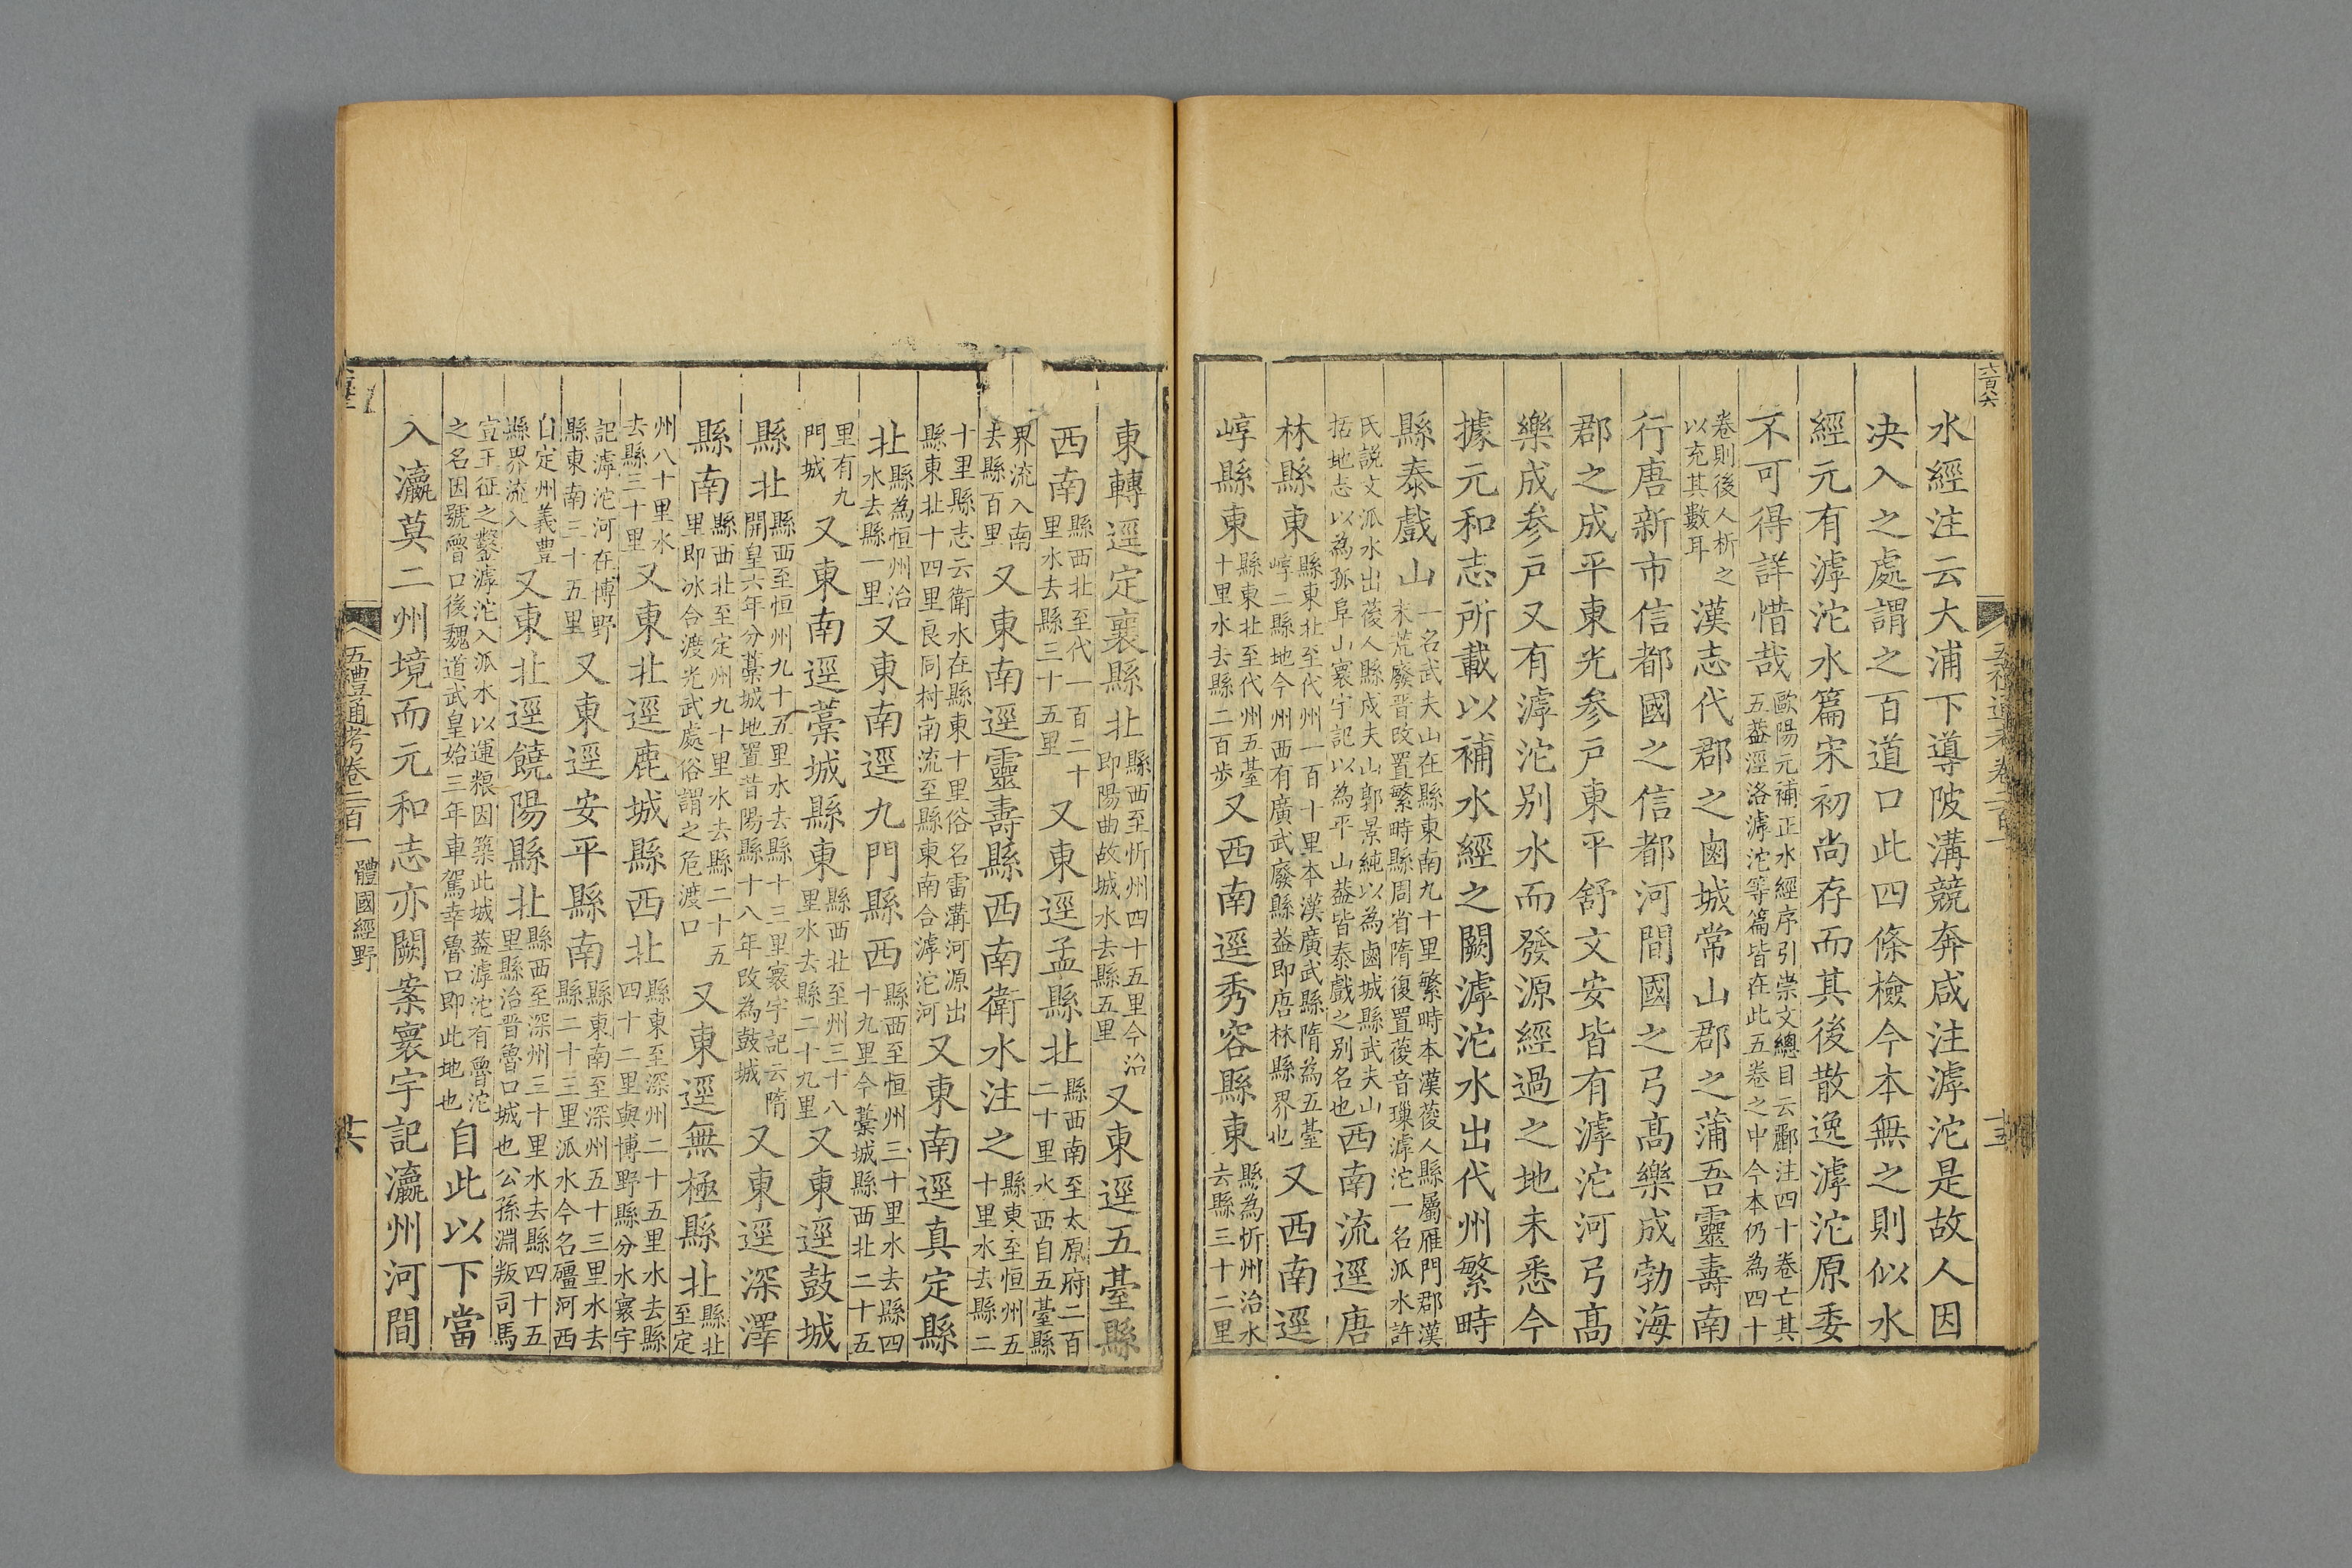 六百六
五禮通考卷二百一
水經注云大浦下導陂溝競奔咸注滹沱是故人因
决入之處謂之百道口此四條檢今本無之則似水
經元有滹沱水篇宋初尚存而其後散逸滹沱原委
不可得詳惜哉歐陽元補正水經序引崇文總目云酈注四十卷亡其五葢涇洛滹沱等篇皆在此五卷之中今本仍為四十
卷則後人析之以充其數耳漢志代郡之鹵城常山郡之蒲吾靈壽南
行唐新市信都國之信都河間國之弓高樂成勃海
郡之成平東光参戸東平舒文安皆有滹沱河弓高
樂成参戸又有滹沱別水而發源經過之地未悉今
據元和志所載以補水經之闕滹沱水出代州繁畤
縣泰戲山一名武夫山在縣東南九十里繁畤本漢葰人縣屬雁門郡漢末荒廢晋改置繁畤縣周省隋復置葰音璅滹沱一名派水許
氏説文派水出葰人縣戍夫山郭景純以為鹵城縣武夫山括地志以為孤阜山寰宇記以為平山葢皆泰戲之别名也西南流逕唐
林縣東縣東北至代州一百十里本漢廣武縣隋為五臺崞二縣地今州西有廣武廢縣葢即唐林縣界也又西南逕
崞縣東縣東北至代州五十里水去縣二百歩又西南逕秀容縣東縣為忻州治水去縣三十二里
東轉逕定襄縣北縣西至忻州四十五里今治即陽曲故城水去縣五里又東逕五臺縣
西南縣西北至代一百二十里水去縣三十五里又東逕孟縣北縣西南至太原府二百二十里水西自五臺縣
界流入南去縣百里又東南逕靈壽縣西南衛水注之縣東至恒州五十里水去縣二
十里縣志云衛水在縣東十里俗名雷溝河源出縣東北十四里良同村南流至縣東南合滹沱河又東南逕真定縣
北縣為恒州治水去縣一里又東南逕九門縣西縣西至恒州三十里水去縣四十九里今藁城縣西北二十五
里有九門城又東南逕藁城縣東縣西北至州三十八里水去縣二十九里又東逕鼓城
縣北縣西至恒州九十五里水去縣十三里寰宇記云隋開皇六年分藁城地置昔陽縣十八年改為鼓城又東逕深澤
縣南縣西北至定州九十里水去縣二十五里即冰合渡光武處俗謂之危渡口又東逕無極縣北縣北至定
州八十里水去縣三十里又東北逕鹿城縣西北縣東至深州二十五里水去縣四十二里與博野縣分水寰宇
記滹沱河在博野縣東南三十五里又東逕安平縣南縣東南至深州五十三里水去縣二十三里派水今名礓河西
自定州義豊縣界流入又東北逕饒陽縣北縣西至深州三十里水去縣四十五里縣治晋魯口城也公孫淵叛司馬
宣王征之鑿滹沱入派水以運粮因築此城葢滹沱有魯沱之名因號曾口後魏道武皇始三年車駕幸魯口即此地也自此以下當
入瀛莫二州境而元和志亦闕案寰宇記瀛州河間
五禮通考卷二百一
體國經野
共